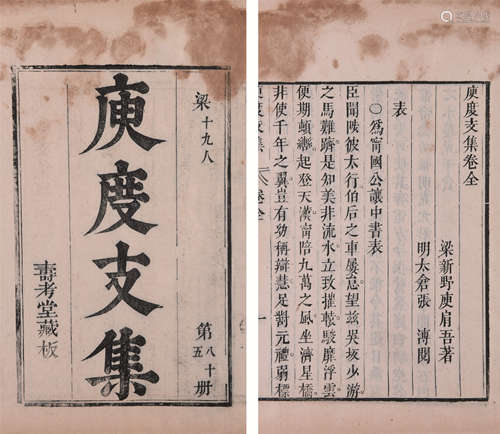 梁十九八
庾度支集
第八十五册
壽考堂藏板
庾度支集卷全
梁新野庾肩吾著
明太倉張 溥閱
表
〇爲甯國公讓中書表
臣聞陟彼太行伯后之車屢怠望茲吳坂少游
之馬難躋是知美非流水立致摧
浮雲
便期頓
起登天漢甯陪九萬之風坐濟星橋
非使千年之翼豈有幼稱辯慧足對元禮弱標
庾度支集
卷全
一